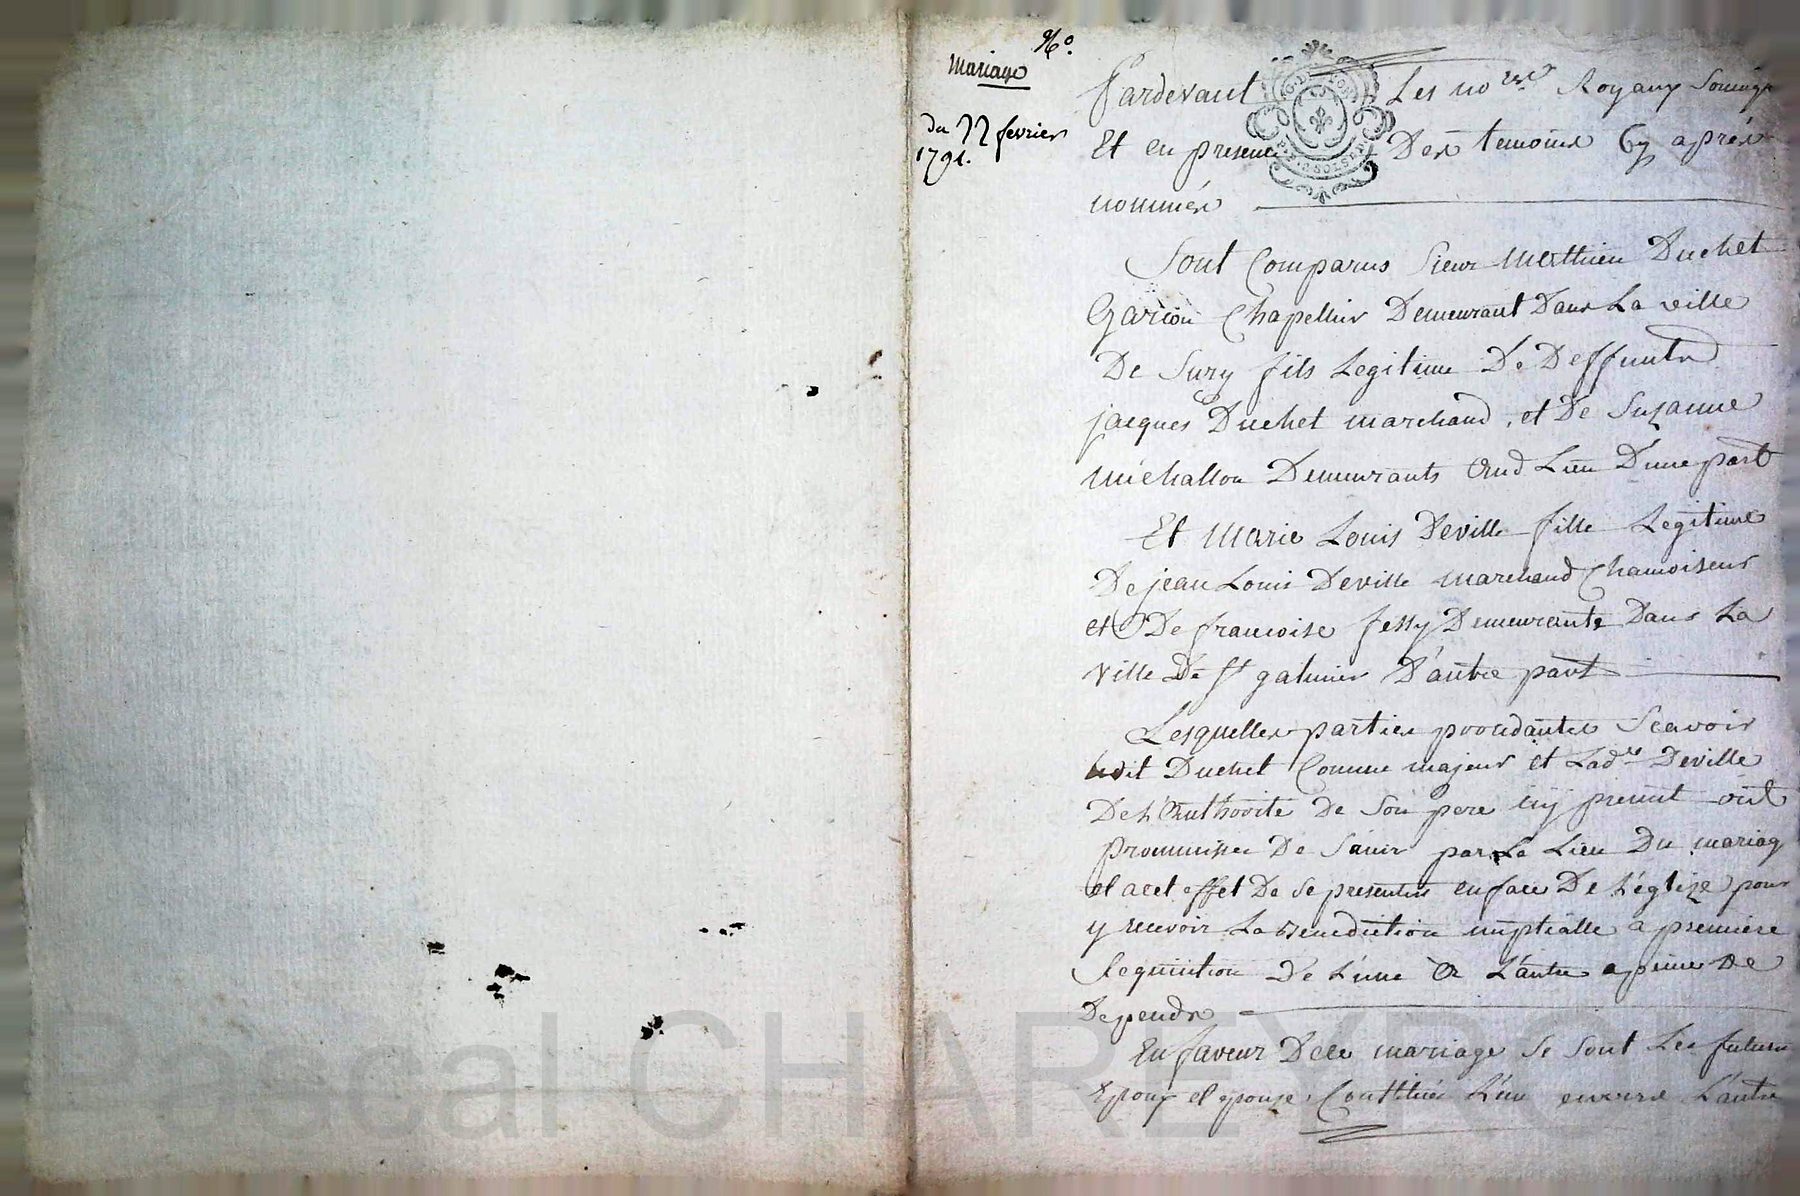 N°
Mariage
du 22 fevrier
1791.
Pardevant Les no.res Royaux Soussig
Et en presence Des temoins Cy après
nommés
Sont Comparus Sieur Matthieu Duchet
Garcon Chapellier Demeurant Dans La ville
De Sury fils Legitime De Deffunts
jacques Duchet marchand, et De Suzanne
michallon Demeurants Aud Lieu D'une part
Et Marie Louis Deville fille Legitime
De jean Louis Deville marchand Chamoiseur
et De francoise fessy Demeurante Dans La
ville De St galmier D'autre part
Lesquelles parties procedantes Scavoir
Ledit Duchet Comme majeur et Lad.te Deville
De L'Authorité De Son pere icy present ont
prommisse De S'unir par Le Lien Du mariag
et acet effet De Se presenter enface De L'églize pour
y recevoir La Benediction nuptialle a premiere
Requisition De L'une A L'autre apeine De
Depends
En faveur Dece mariage Se Sont Les futurs
Epoux et epouse, Constitués L'un envers L'autre
Pascal CHAREYRON